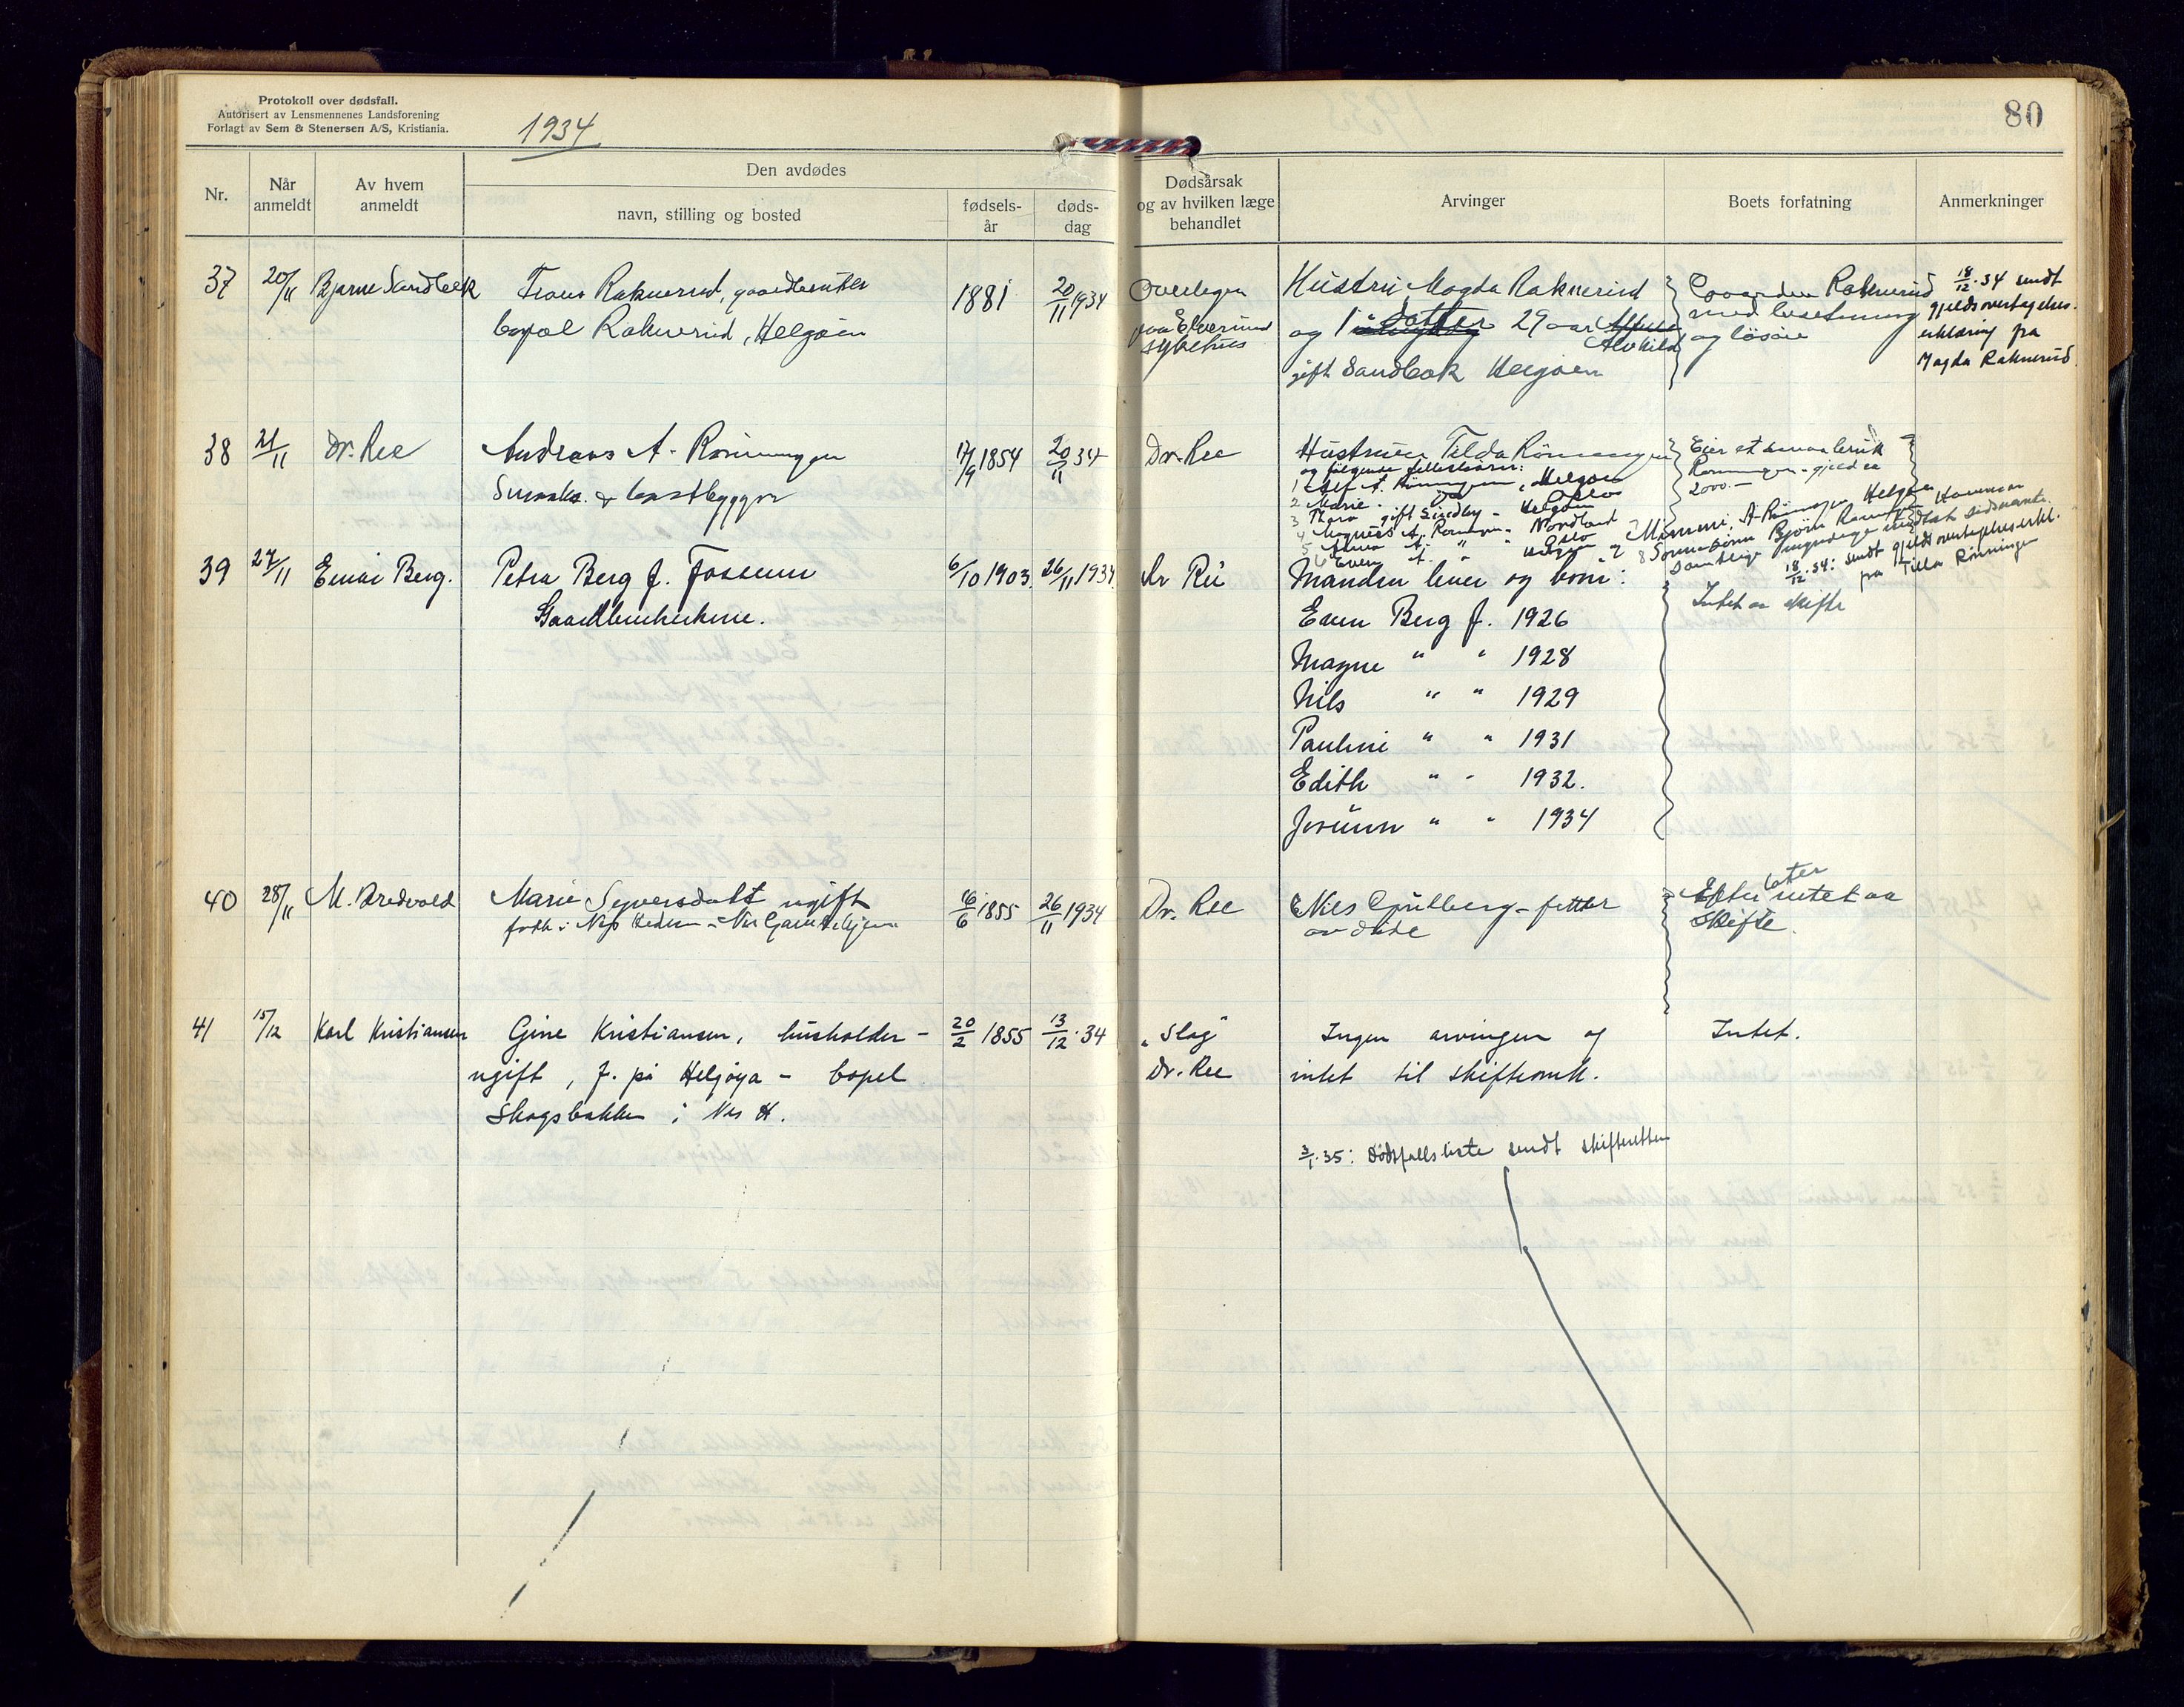 Protokoll over dødsfall.
Autorisert av Lensmennenes Landsforening
Forlagt av Sem & Stenersen A/S, Kristiania.
1934
80
Nr.
Når anmeldt
Av hvem anmeldt
Den avdødes
navn, stilling og bosted
fødsels-år
døds-dag
Dødsårsak
og av hvilken læge
behandlet
Arvinger
Boets forfatning
Anmerkninger
37 20/11 Bjarne Sandbek Frans Raknerud, gaardbruker 1881 20/11 1934
bopæl Raknerud, Helgøen
Overlegen
paa Elverum
sykehus
Hustru Magda Raknerud
og 1 datter 29 aar Alvhild
gift Sandbæk Helgøen
Gaarden Raknerud
med besetning
og løsøre
18/12.34 sendt
gjeldsovertagelses-
erklæring fra
Magda Raknerud.
38 21/11 Dr. Ree Andreas A. Rønningen 17/9 1854 20/11 34
Smaabr. & bygger
Dr. Ree
Hustruen Tilda Rønningen
og følgende fellesbarn:
1 A. Rønningen, Helgøen
2 Marie Oslo
3 Thora gift Sindby - Helgøen
4 Magnus A. Rønningen - Nordland
5 A. " Oslo
6 Even A. " Helgøen
7 A. Rønningen Helgøen
8 Sønnesønn Bjørn Hamar
Samtlige myndige undtat sidsnævnte.
Eier et smaabruk
Rønningen - gjeld ca
2000.-
18/12.34: sendt gjeldsovertagelseserkl.
fra Tilda Rønningen
39 27/11 Einar Berg. Petra Berg f. Fossum 6/10 1903. 26/11 1934.
Gaardbrukerkone.
Dr Ree
Manden lever og barn:
Even Berg f. 1926
Magne " " 1928
Nils " " 1929
Pauline " " 1931
Edith " " 1932.
Jorunn " " 1934
Intet aa skifte
40 28/11 M. Bredvold Marie Syversdatt ugift 16/6 1855 26/11 1934
født i Nes Hedm.
Dr. Ree
Nils Gjulberg - fetter
av døde
Efterlater intet aa
skifte.
41 15/12 Karl Kristiansen Gine Kristiansen, husholder - 20/2 1855 13/12.34
ugift, f. på Helgøya - bopel
Skogsbakken i Nes H.
"Slag"
Dr. Ree
Ingen arvinger og
intet til skifteomk.
Intet.
3/1.35: Dødsfallsliste sendt skifteretten